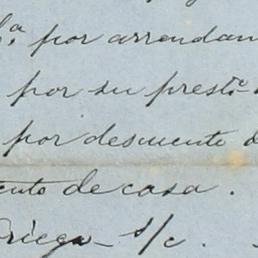 por arrendam
por su prest.ª
por descuento d
ento de casa.
s/c.